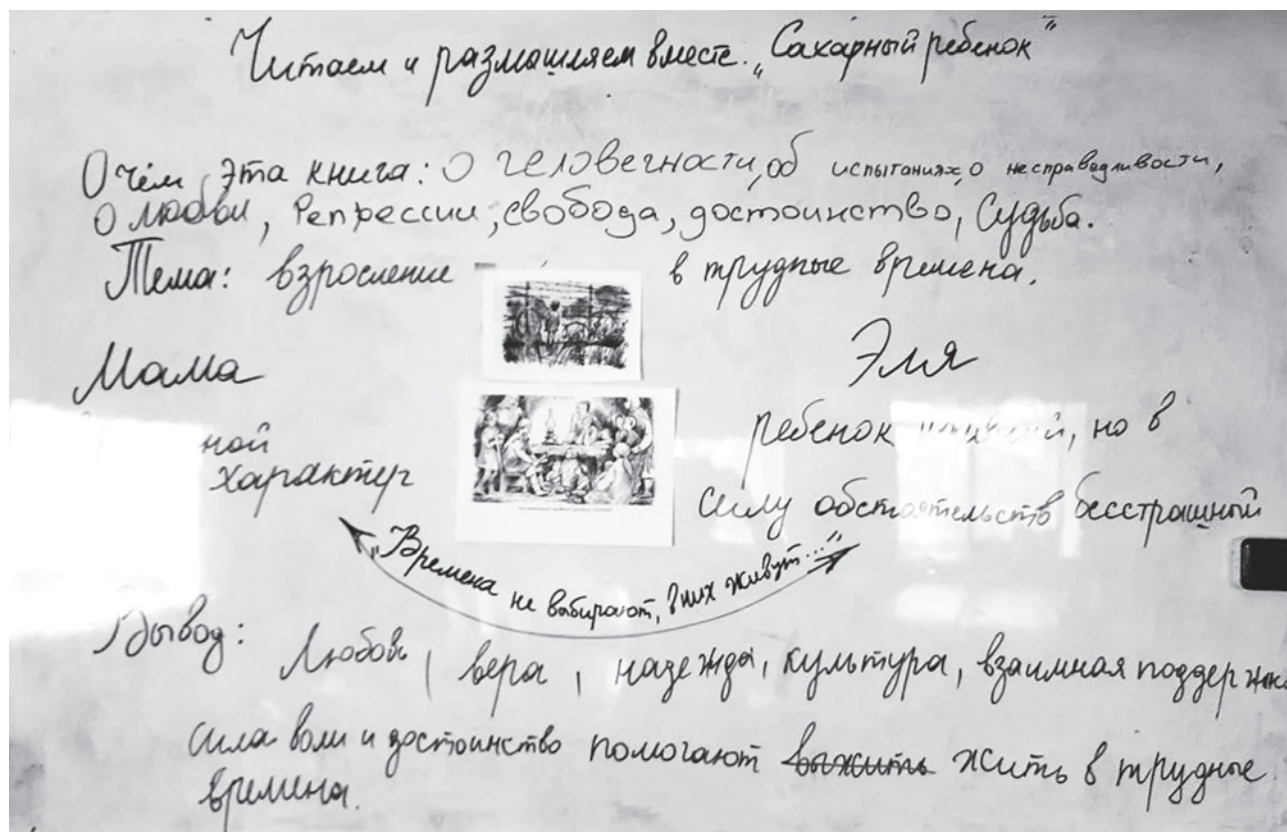 Читаем и размышляем вместе. „Сахарный ребенок"
О чём эта книга: О человечности, об испытаниях, о несправедливости,
О любви, Репрессии, свобода, достоинство, Судьба.
Тема: взросление в трудные времена.
Мама
Эля
ной
характер
ребенок, но в
силу обстоятельств бесстрашный
„Времена не выбирают, в них живут..."
Вывод: Любовь, вера, надежда, культура, взаимная поддержка
сила воли и достоинство помогают выжить жить в трудные
времена.